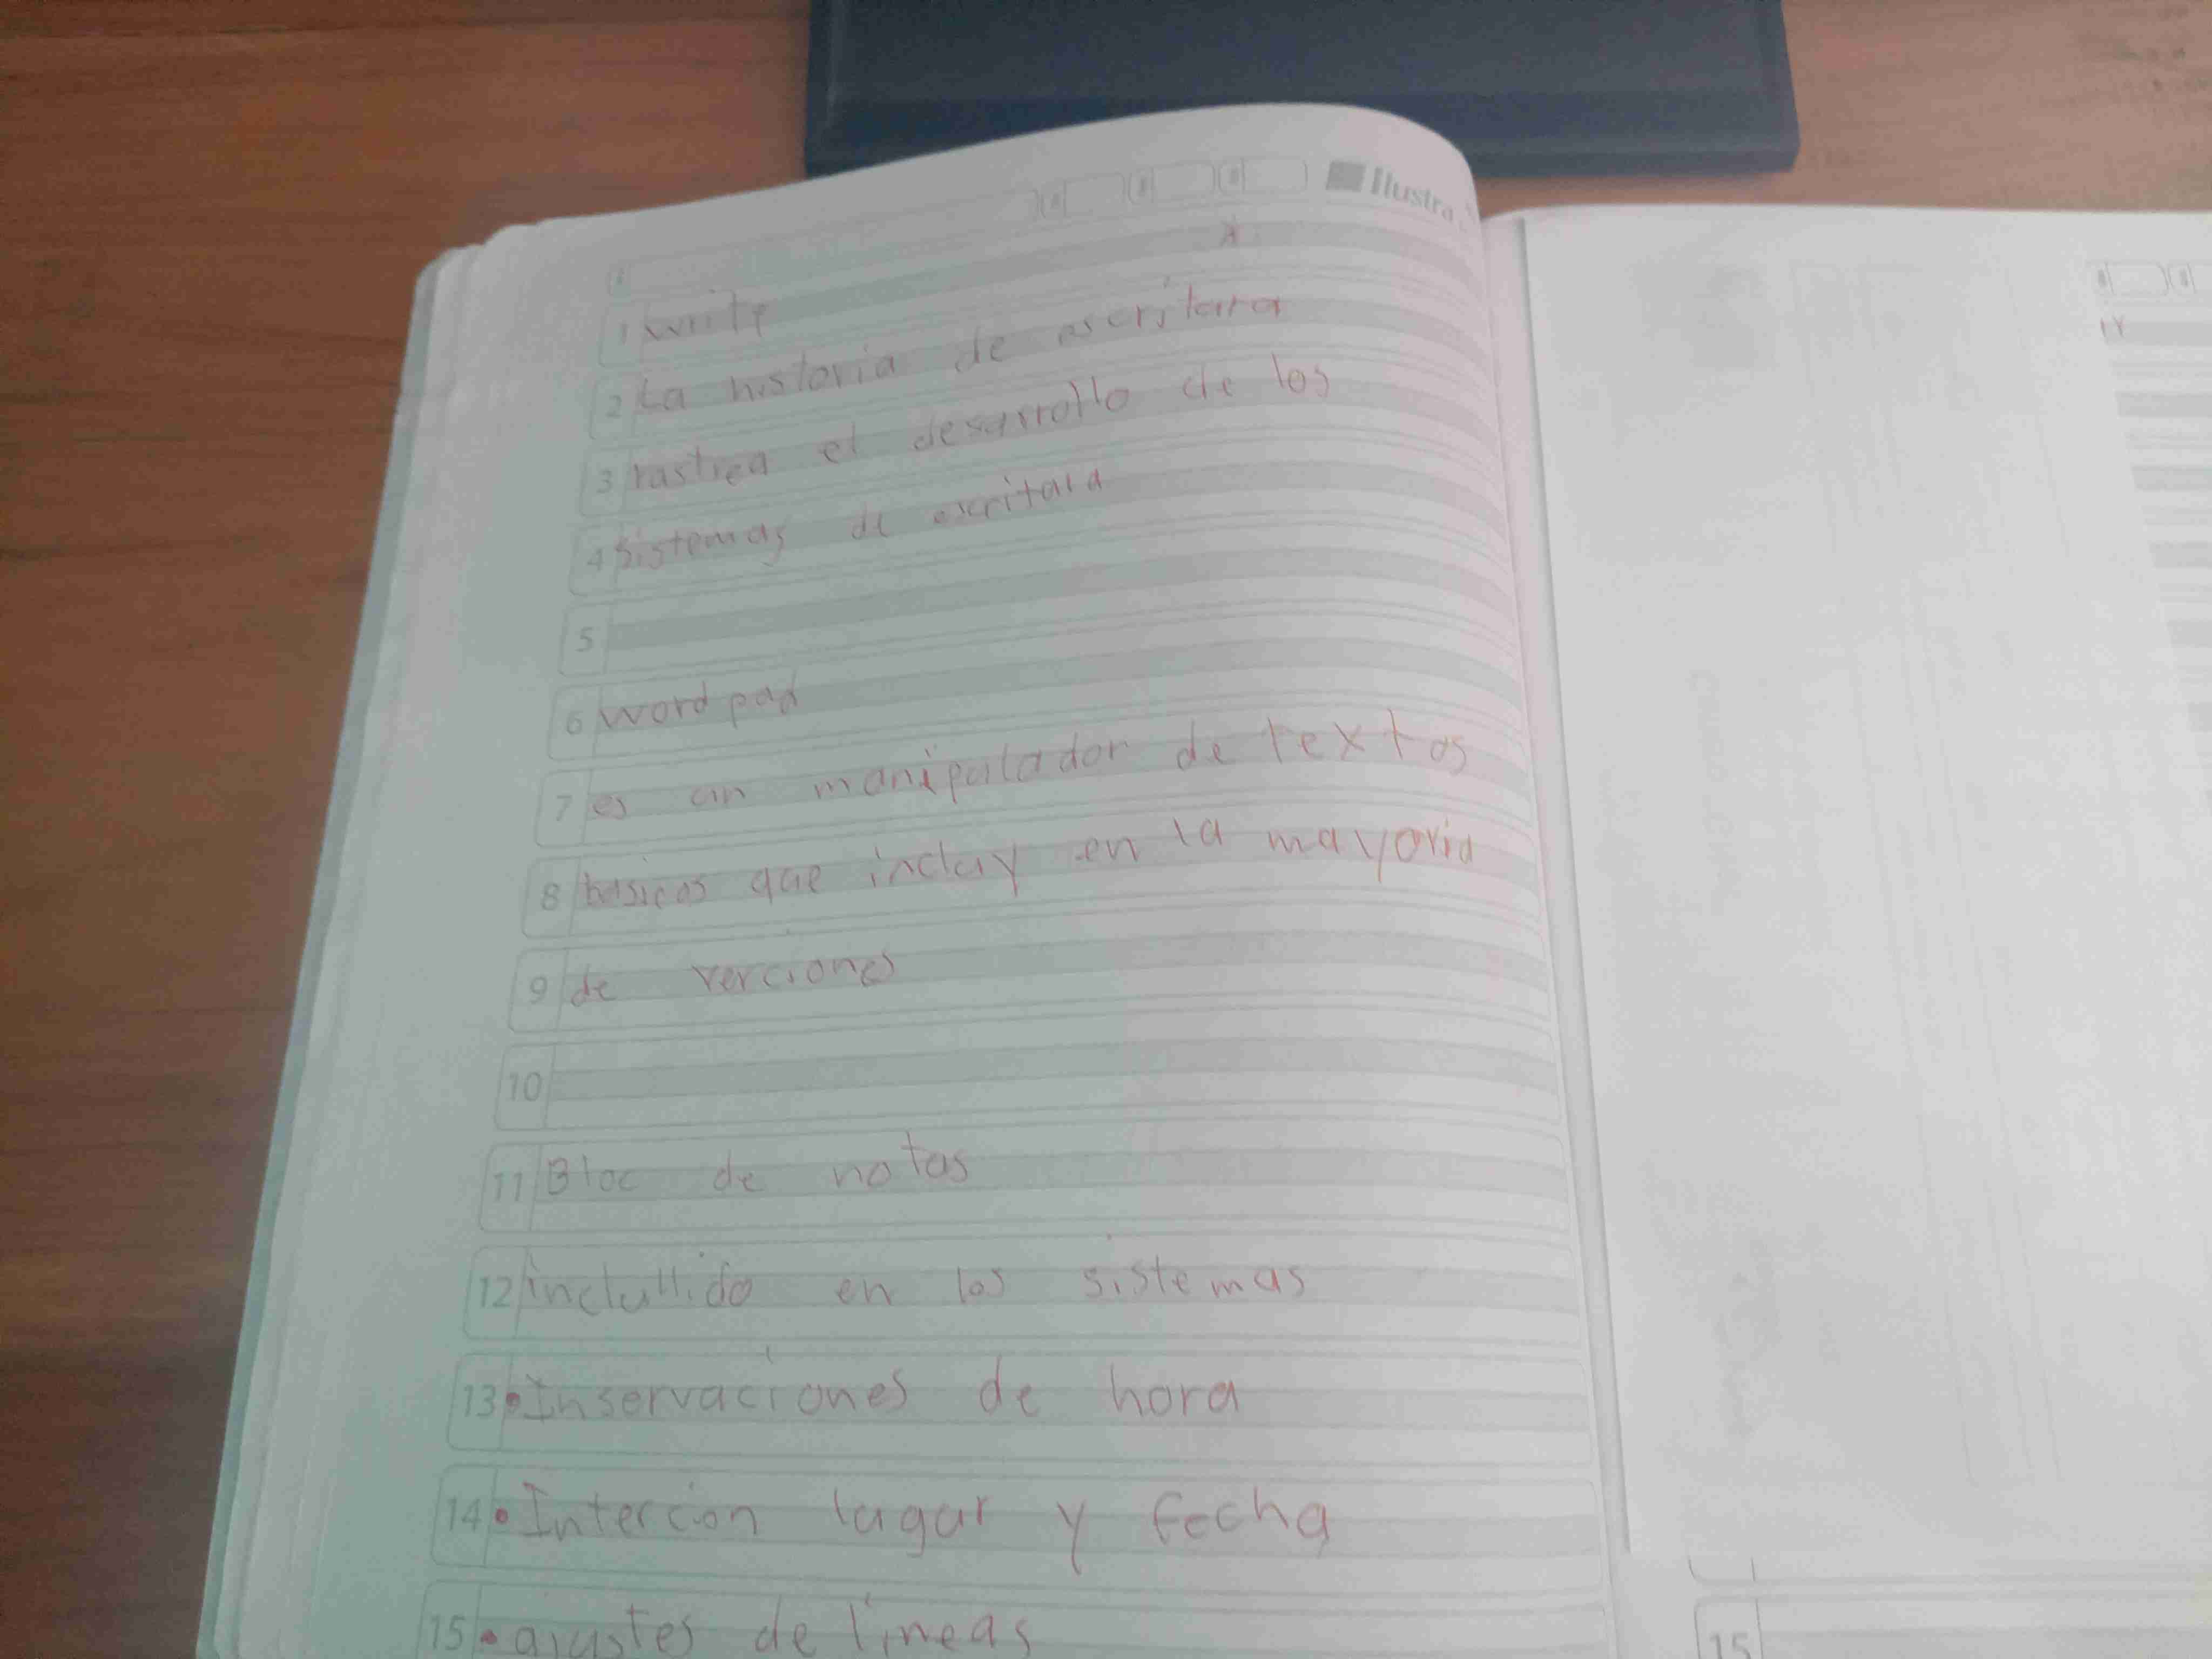 Ilustra
1 write
2 La historia de escritura
3 rastrea el desarrollo de los
4 sistemas de escritura
5
6 word pad
7 es un manipulador de textos
8 basicos que incluy en la mayoria
9 de verciones
10
11 Bloc de notas
12 inclullido en los sistemas
13 • Inservaciones de hora
14 • Intercion lugar y fecha
15 • ajustes de lineas
15